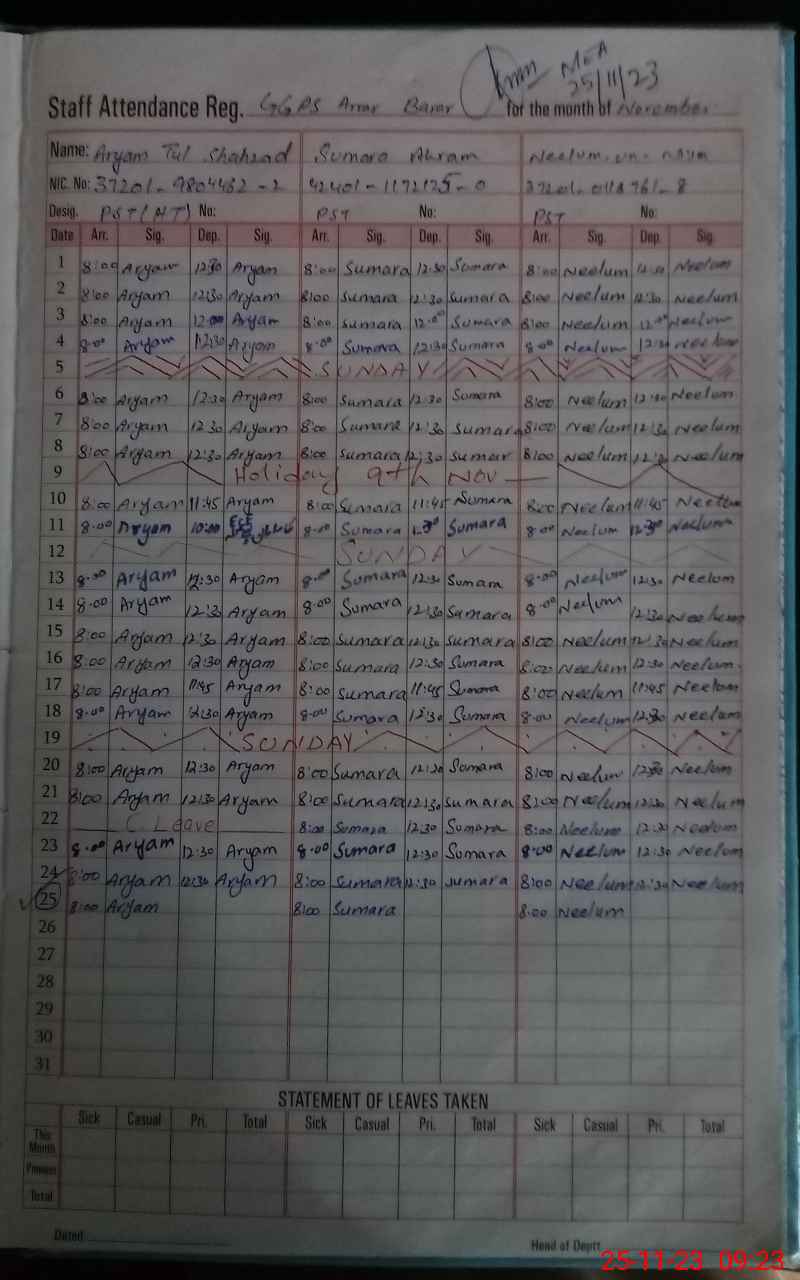 MEA
25/11/23
Staff Attendance Reg. GGPS Arrar Barar for the month of November
Name: Aryam Tul Shahzad Sumara Akram Neelum
NIC. No: 37201-9804432-2
Desig. PST(HT) No: PST No: PST No:
Date Arr. Sig. Dep. Sig. Arr. Sig. Dep. Sig. Arr. Sig. Dep. Sig.
1 8:00 Aryam 12:30 Aryam 8:00 Sumara 12:30 Sumara 8:00 Neelum 12:30 Neelum
2 8:00 Aryam 12:30 Aryam 8:00 Sumara 12:30 Sumara 8:00 Neelum 12:30 Neelum
3 8:00 Aryam 12:00 Aryam 8:00 Sumara 12:00 Sumara 8:00 Neelum 12:00 Neelum
4 8:00 Aryam 12:30 Aryam 8:00 Sumara 12:30 Sumara 8:00 Neelum 12:30 Neelum
5 SUNDAY
6 8:00 Aryam 12:30 Aryam 8:00 Sumara 12:30 Sumara 8:00 Neelum 12:30 Neelum
7 8:00 Aryam 12:30 Aryam 8:00 Sumara 12:30 Sumara 8:00 Neelum 12:30 Neelum
8 8:00 Aryam 12:30 Aryam 8:00 Sumara 12:30 Sumar 8:00 Neelum 12:30 Neelum
9 Holiday 9th Nov
10 8:00 Aryam 11:45 Aryam 8:00 Sumara 11:45 Sumara 8:00 Neelum 11:45 Neelum
11 8:00 Aryam 10:00 8:00 Sumara 12:30 Sumara 8:00 Neelum 12:30 Neelum
12 SUNDAY
13 8:00 Aryam 12:30 Aryam 8:00 Sumara 12:30 Sumara 8:00 Neelum 12:30 Neelum
14 8:00 Aryam 12:30 Aryam 8:00 Sumara 12:30 Sumara 8:00 Neelum 12:30 Neelum
15 8:00 Aryam 12:30 Aryam 8:00 Sumara 12:30 Sumara 8:00 Neelum 12:30 Neelum
16 8:00 Aryam 12:30 Aryam 8:00 Sumara 12:30 Sumara 8:00 Neelum 12:30 Neelum
17 8:00 Aryam 11:45 Aryam 8:00 Sumara 11:45 Sumara 8:00 Neelum 11:45 Neelum
18 8:00 Aryam 12:30 Aryam 8:00 Sumara 12:30 Sumara 8:00 Neelum 12:30 Neelum
19 SUNDAY
20 8:00 Aryam 12:30 Aryam 8:00 Sumara 12:30 Sumara 8:00 Neelum 12:30 Neelum
21 8:00 Aryam 12:30 Aryam 8:00 Sumara 12:30 Sumara 8:00 Neelum 12:30 Neelum
22 C. Leave 8:00 Sumara 12:30 Sumara 8:00 Neelum 12:30 Neelum
23 8:00 Aryam 12:30 Aryam 8:00 Sumara 12:30 Sumara 8:00 Neelum 12:30 Neelum
24 8:00 Aryam 12:30 Aryam 8:00 Sumara 12:30 Sumara 8:00 Neelum 12:30 Neelum
25 8:00 Aryam 8:00 Sumara 8:00 Neelum
26
27
28
29
30
31
STATEMENT OF LEAVES TAKEN
Sick Casual Pri. Total Sick Casual Pri. Total Sick Casual Pri. Total
This Month
Previous
Total
Dated Head of Deptt.
25-11-23 09:23